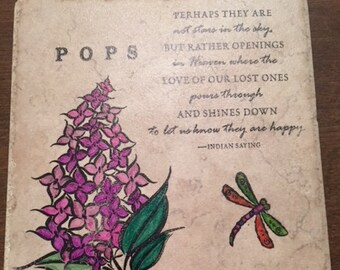 PERHAPS THEY ARE
not stars in the sky,
BUT RATHER OPENINGS
in Heaven where the
LOVE OF OUR LOST ONES
pours through
AND SHINES DOWN
to let us know they are happy.
—INDIAN SAYING
POPS